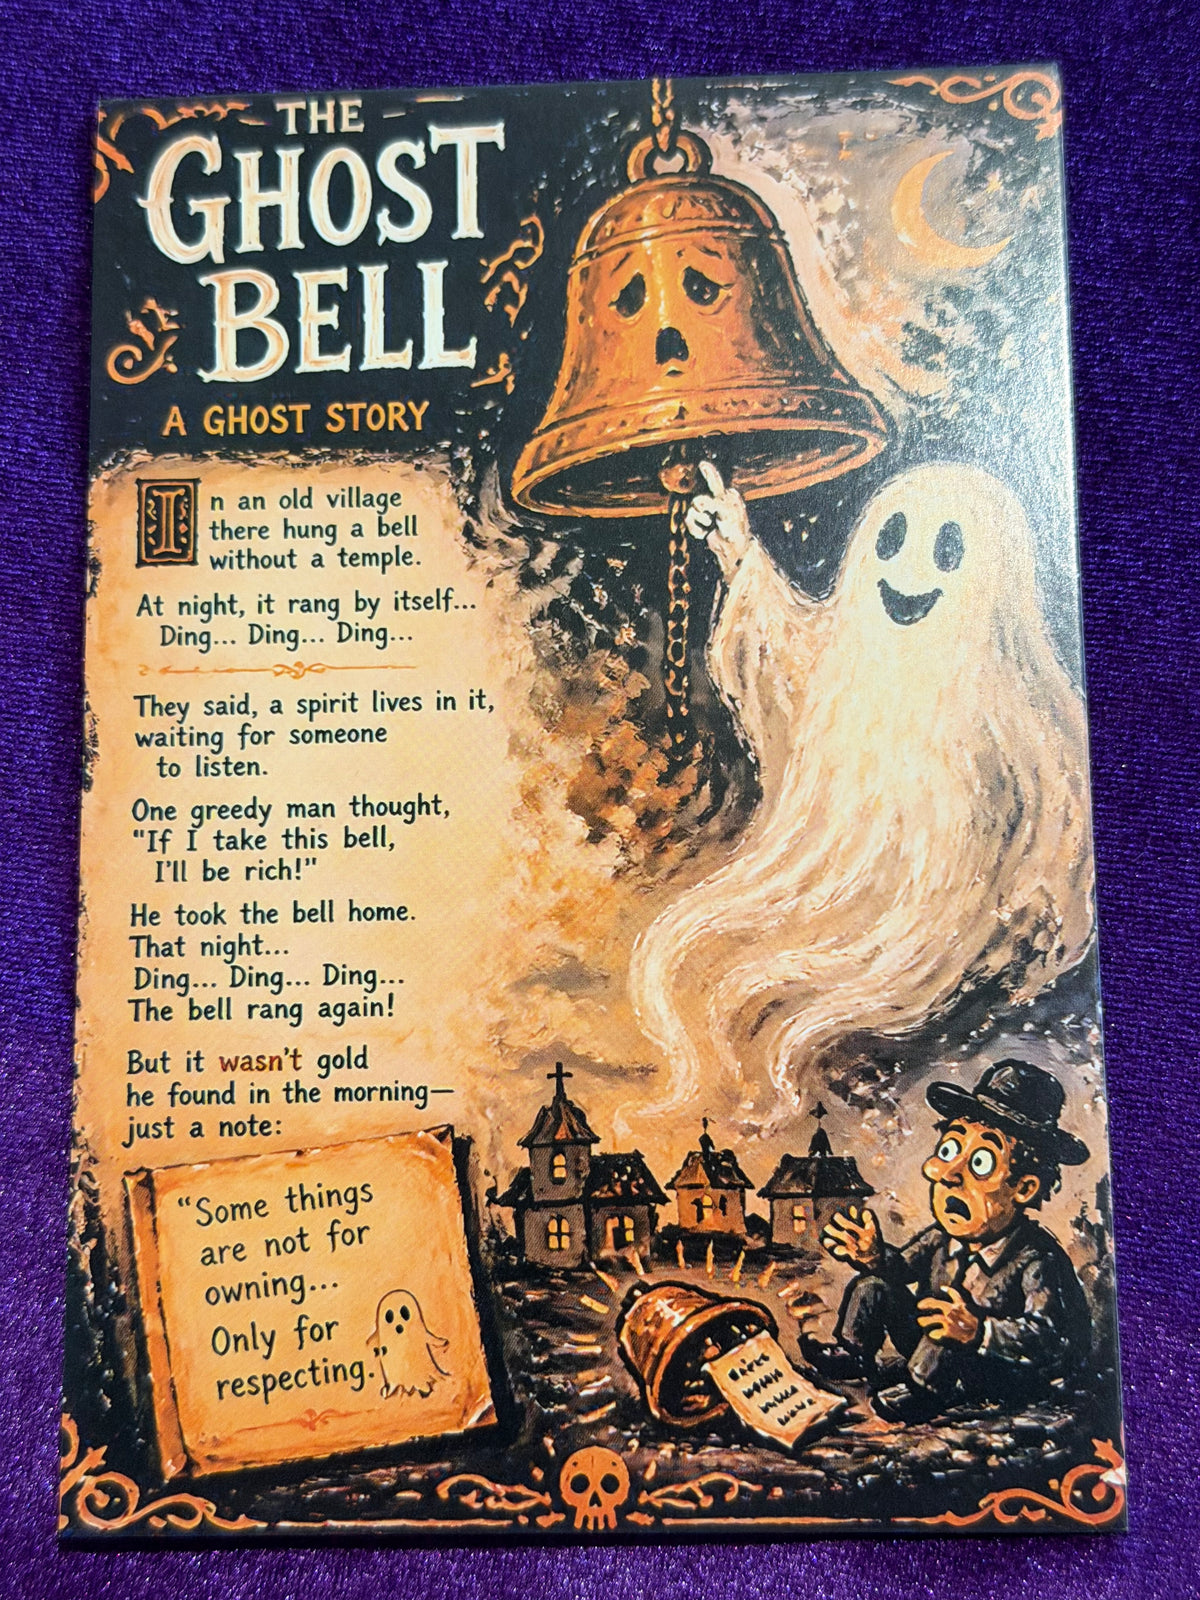 THE
GHOST
BELL
A GHOST STORY
In an old village
there hung a bell
without a temple.
At night, it rang by itself...
Ding... Ding... Ding...
They said, a spirit lives in it,
waiting for someone
to listen.
One greedy man thought,
"If I take this bell,
I'll be rich!"
He took the bell home.
That night...
Ding... Ding... Ding...
The bell rang again!
But it wasn't gold
he found in the morning—
just a note:
“Some things
are not for
owning...
Only for
respecting.”